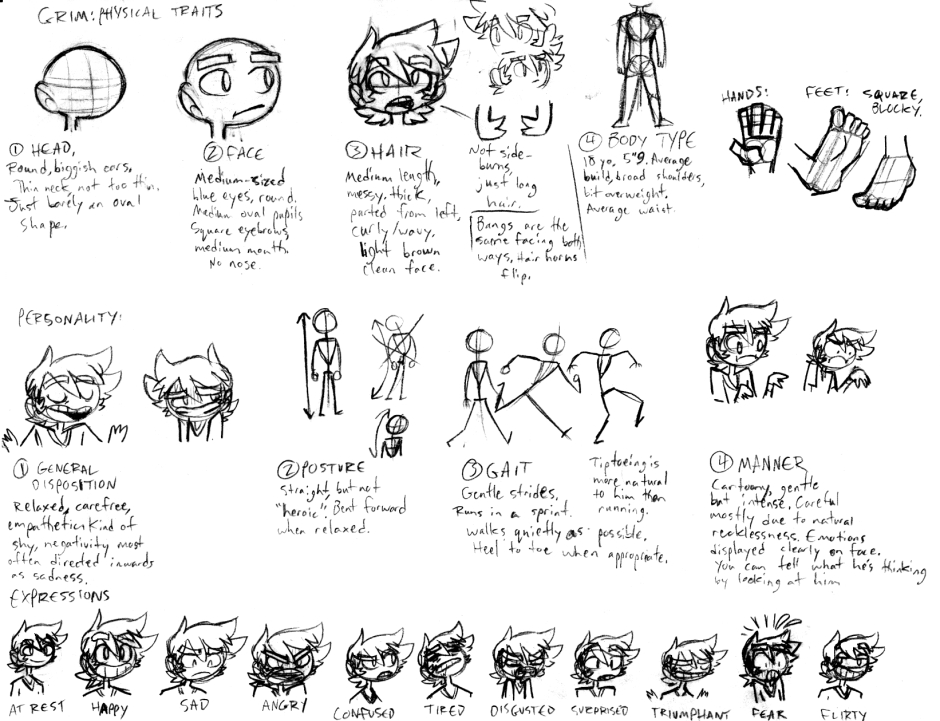 GRIM: PHYSICAL TRAITS
① HEAD,
Round, biggish ears,
Thin neck, not too thin.
Just barely an oval
shape.
② FACE
Medium-sized
blue eyes, round.
Medium oval pupils
Square eyebrows
medium mouth
No nose.
③ HAIR
Medium length,
messy, thick,
parted from left,
curly/wavy,
light brown
clean face.
Not side-
burns,
just long
hair.
Bangs are the
same facing both
ways, Hair horns
flip.
④ BODY TYPE
18 yo, 5"9. Average
build, broad shoulders,
bit overweight,
Average waist.
HANDS:
FEET: SQUARE,
BLOCKY.
PERSONALITY:
① GENERAL
DISPOSITION
Relaxed, carefree,
empathetic. Kind of
shy, negativity most
often directed inwards
as sadness.
② POSTURE
straight, but not
"heroic". Bent forward
when relaxed.
③ GAIT
Gentle strides,
Runs in a sprint.
walks quietly as possible,
Heel to toe when appropriate.
Tiptoeing is
more natural
to him than
running.
④ MANNER
Cartoony, gentle
but intense. Careful
mostly due to natural
recklessness. Emotions
displayed clearly on face.
You can tell what he's thinking
by looking at him
EXPRESSIONS
AT REST
HAPPY
SAD
ANGRY
CONFUSED
TIRED
DISGUSTED
SURPRISED
TRIUMPHANT
FEAR
FLIRTY